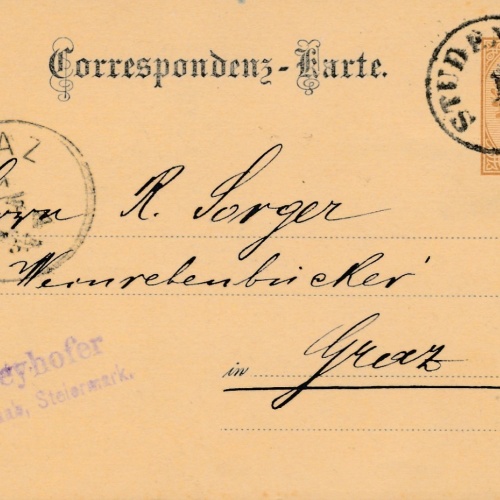 Correspondenz-Karte.
STUDEN
AZ
rrn R. Sorger
Weinrebenbücker
in Graz
eyhofer
aab, Steiermark.